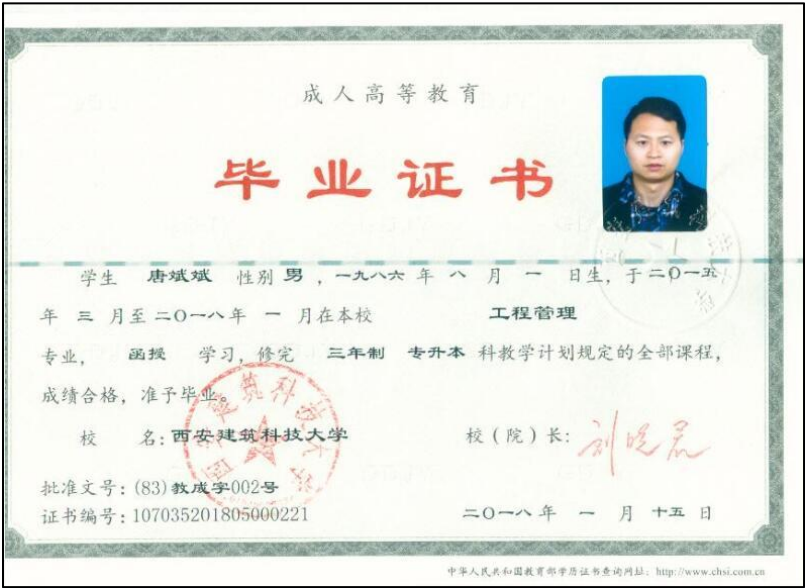 成人高等教育
毕业证书
学生 唐斌斌 性别 男 ，一九八六 年 八 月 一 日生，于二〇一五
年 三 月至二〇一八年 一 月在本校 工程管理
专业， 函授 学习，修完 三年制 专升本 科教学计划规定的全部课程，
成绩合格，准予毕业。
校 名：西安建筑科技大学
校（院）长：刘晓君
批准文号：(83)教成字002号
证书编号：107035201805000221
二〇一八 年 一 月 十五 日
西安建筑科技大学
中华人民共和国教育部学历证书查询网址：http://www.chsi.com.cn